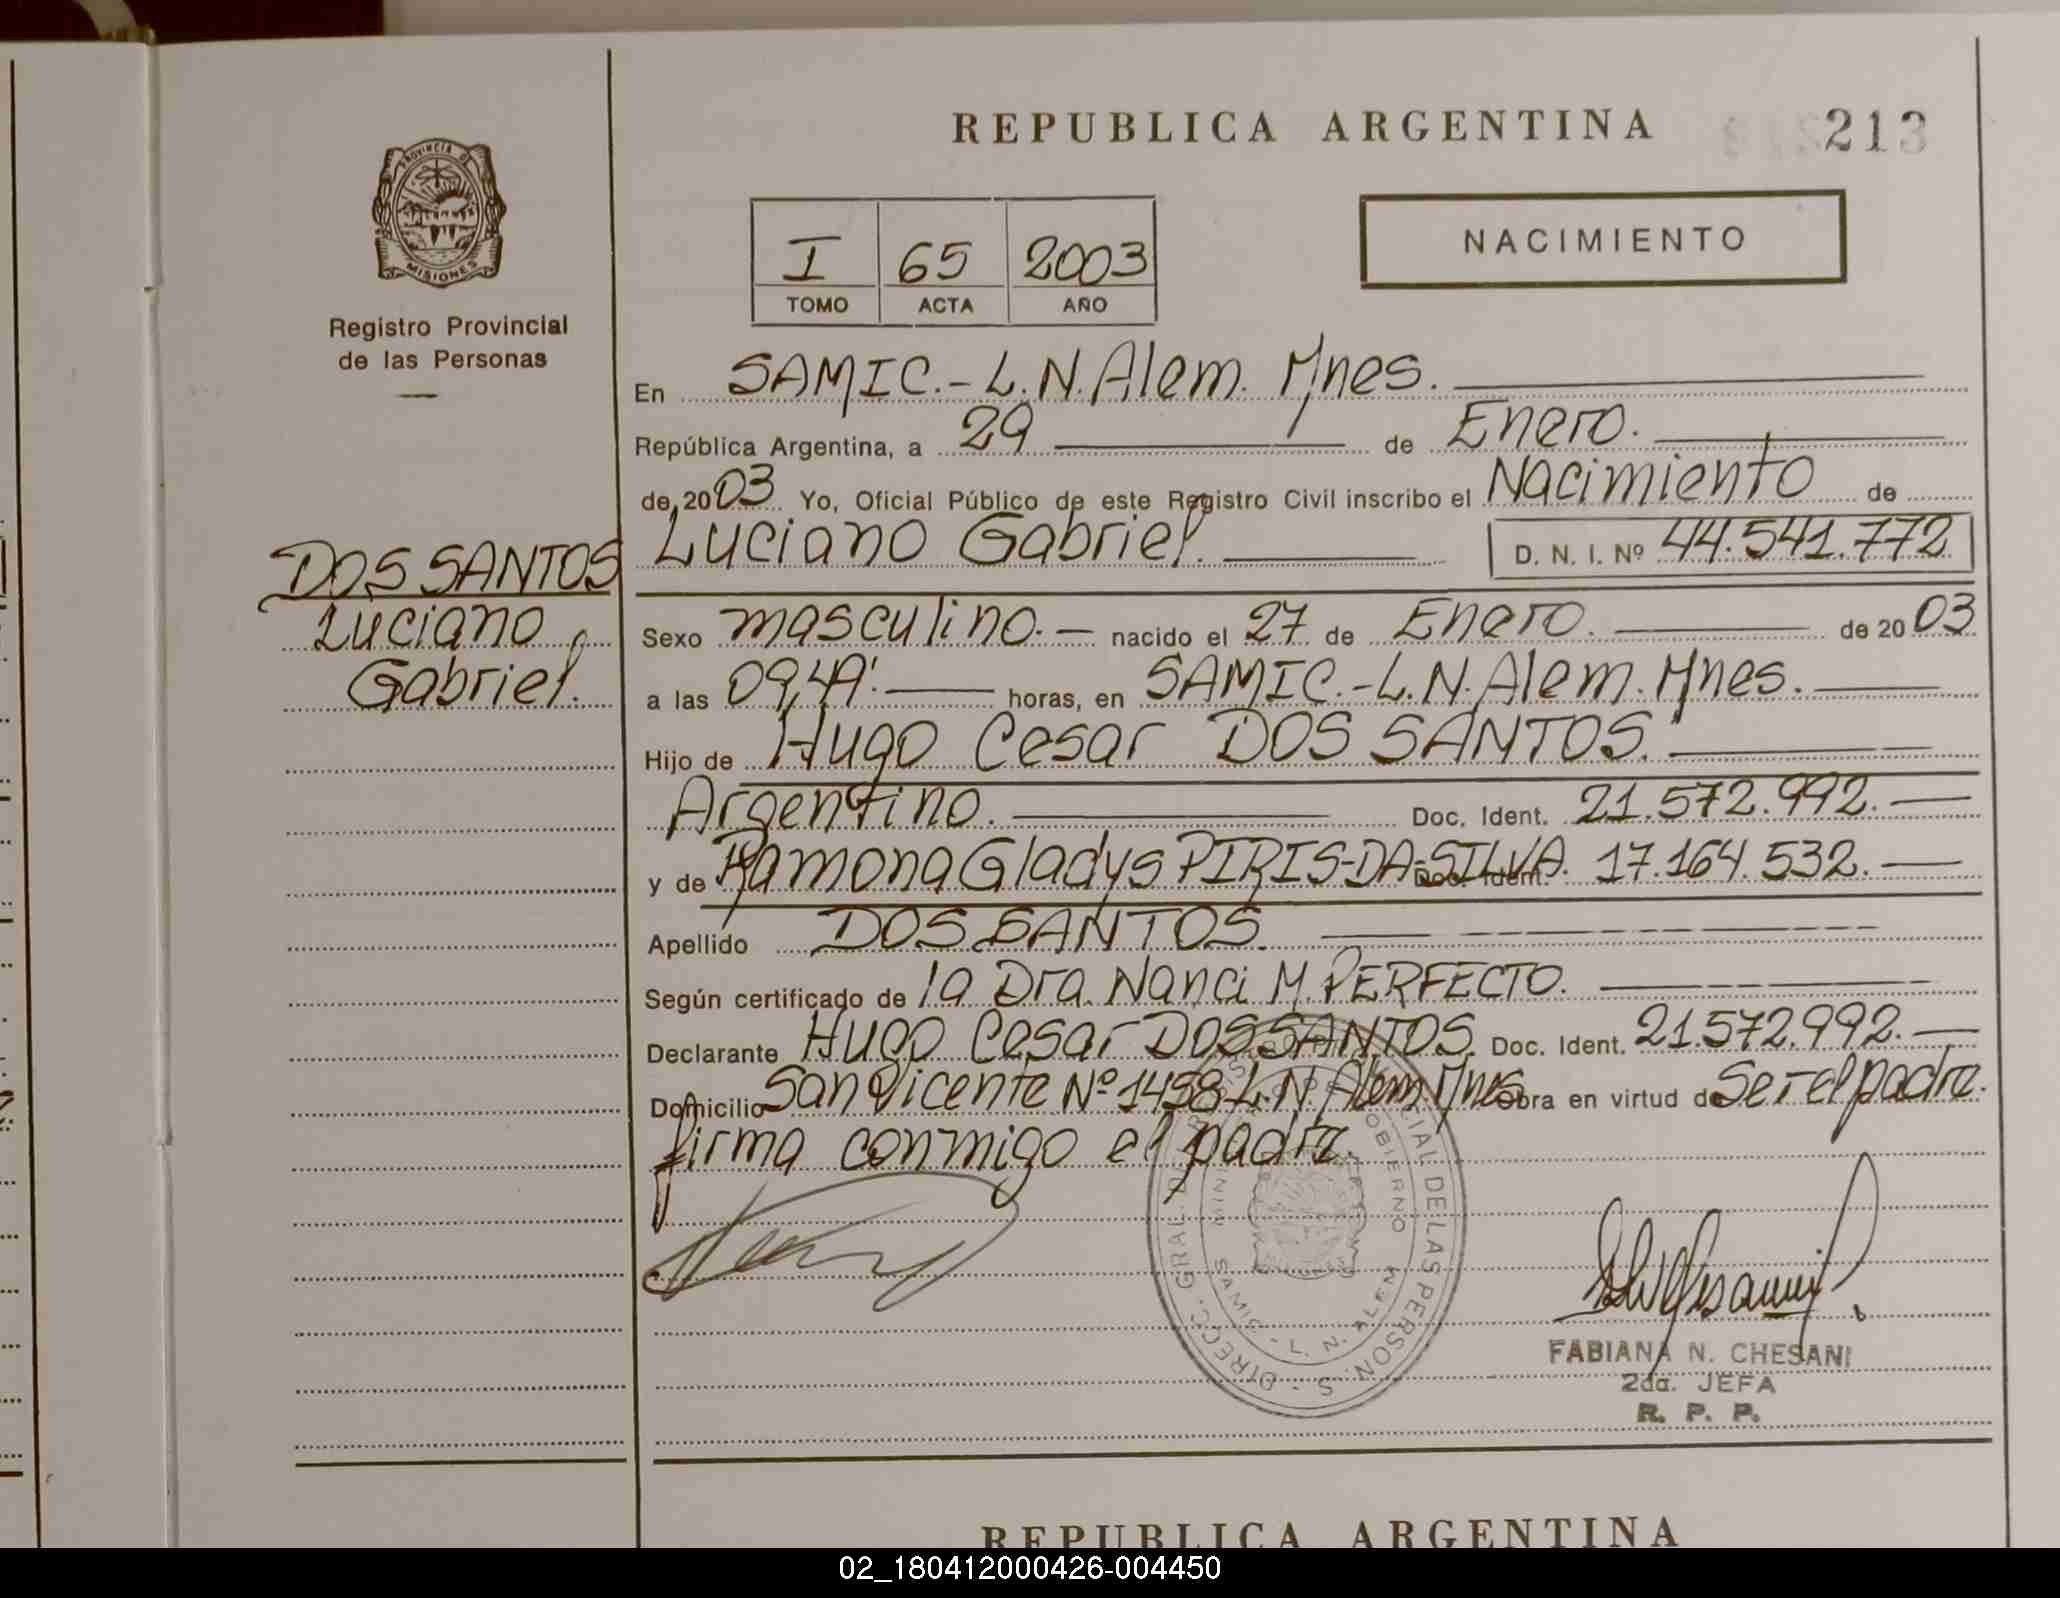 REPUBLICA ARGENTINA 213
PROVINCIA DE
MISIONES
Registro Provincial
de las Personas
I 65 2003
TOMO ACTA AÑO
NACIMIENTO
En SAMIC.-L.N.Alem. Mnes.
República Argentina, a 29 de Enero.
de 2003 Yo, Oficial Público de este Registro Civil inscribo el Nacimiento de
Luciano Gabriel. D. N. I. Nº 44.541.772
DOS SANTOS
Luciano
Gabriel.
Sexo masculino. nacido el 27 de Enero. de 2003
a las 09,49'. horas, en SAMIC.-L.N.Alem. Mnes.
Hijo de Hugo Cesar DOS SANTOS.
Argentino. Doc. Ident. 21.572.992.
y de Ramona Gladys PIRIS-DA-SILVA. Doc. Ident. 17.164.532.
Apellido DOS SANTOS.
Según certificado de la Dra. Nanci M. PERFECTO.
Declarante Hugo Cesar DOS SANTOS. Doc. Ident. 21.572.992.
Domicilio San Vicente Nº 1498 L.N.Alem Mnes Obra en virtud de Ser el padre.
firma conmigo el padre.
DIRECC. GRAL. DEL PERSON. S.
DE LAS
GOBIERNO
SAMIC - L. N. ALEM
FABIANA N. CHESANI
2da. JEFA
R. P. P.
REPUBLICA ARGENTINA
02_180412000426-004450